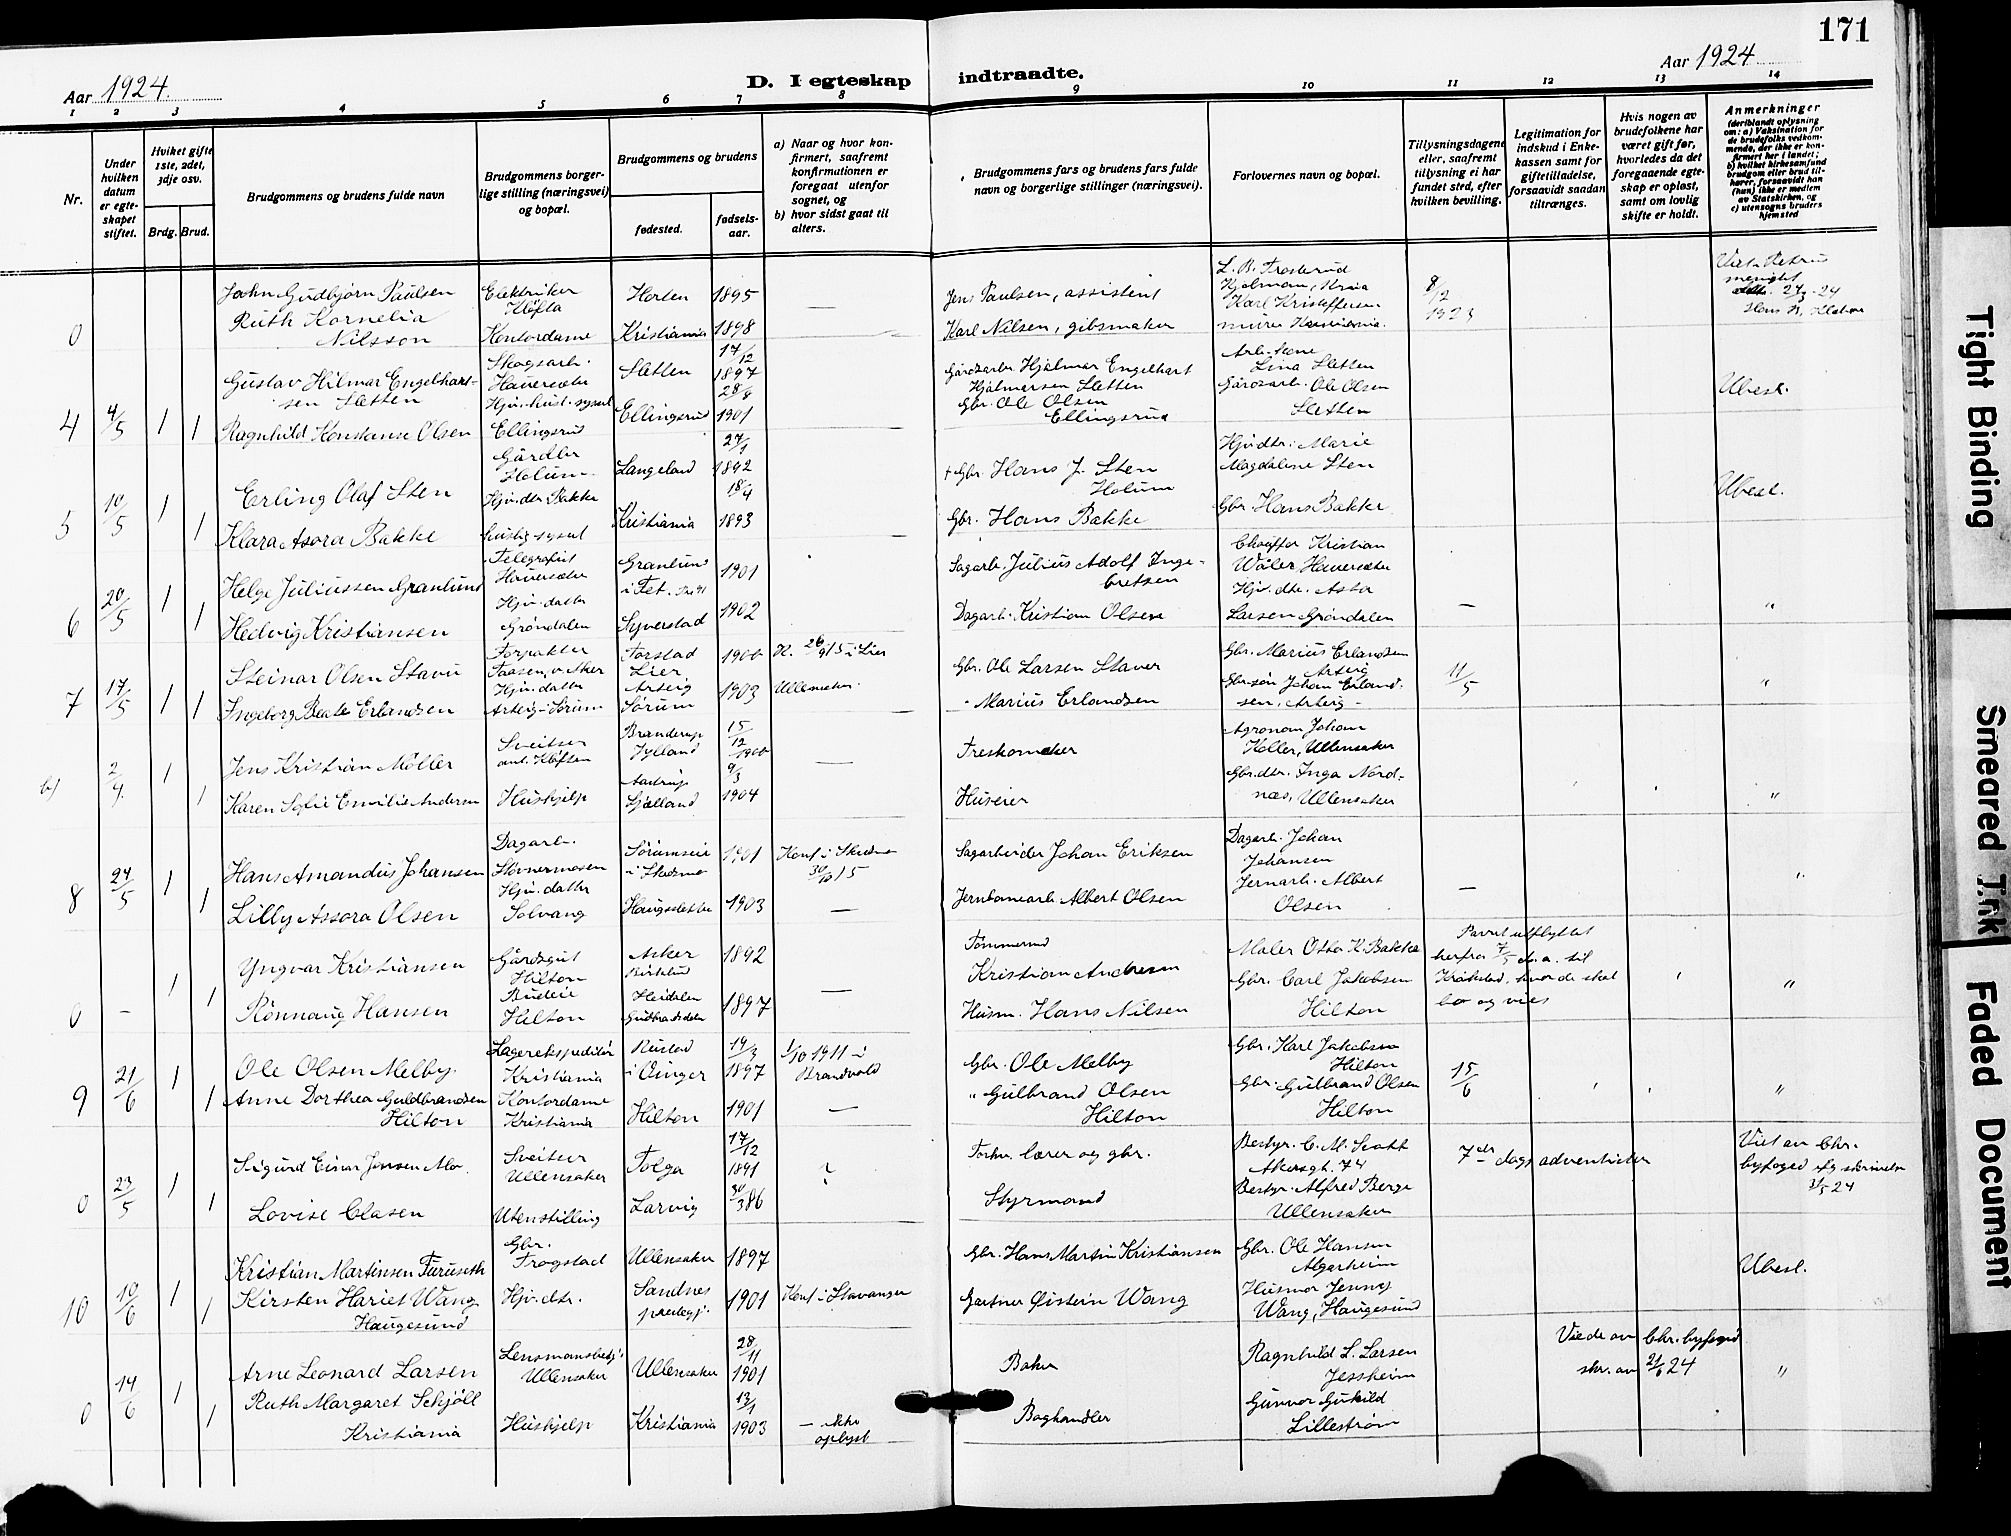 171
Aar 1924.
D. I egteskap
indtraadte.
Aar 1924
1 2 3 4 5 6 7 8 9 10 11 12 13 14
Nr.
Under hvilken datum er egteskapet stiftet.
Hviket gifte 1ste, 2det, 3dje osv.
Brdg. Brud.
Brudgommens og brudens fulde navn
Brudgommens borgerlige stilling (næringsvei) og bopæl.
Brudgommens og brudens
fødested.
fødselsaar.
a) Naar og hvor konfirmert, saafremt konfirmationen er foregaat utenfor sognet, og
b) hvor sidst gaat til alters.
Brudgommens fars og brudens fars fulde navn og borgerlige stillinger (næringsvei).
Forlovernes navn og bopæl.
Tillysningsdagene eller, saafremt tillysning ei har fundet sted, efter hvilken bevilling.
Legitimation for indskud i Enkekassen samt for giftetilladelse, forsaavidt saadan tiltrænges.
Hvis nogen av brudefolkene har været gift før, hvorledes da det foregaaende egteskap er opløst, samt om lovlig skifte er holdt.
Anmerkninger
(deriblandt oplysning om: a) Vaksination for de brudefolks vedkommende, der ikke er konfirmert her i landet; b) hvilket kirkesamfund brudgom eller brud tilhører, forsaavidt han (hun) ikke er medlem av Statskirken, og c) utensogns bruders hjemsted
0
John Gudbjørn Paulsen
Elektriker
Kløfta
Horten 1895
—
Jens Paulsen, assistent
Karl Kristoffersen
8/12
Ruth Kornelia
Nilsson
Kontordame
Kristiania 1898
Karl Nilsen, gibsmaker
4
4/5
1 1
Gustav Hilmar Engelhartsen Sletten
Skogsarb.
Hauersæter
Sletten
17/12 1897
Gårdsarb. Hjalmar Engelhart
Hjalmarsen Sletten
Lina Sletten
Ubesl.
Ragnhild Konstanse Olsen
Ellingsrud
Ellingsrud 28/8 1901
Gbr. Ole Olsen
Ellingsrud
Gårdsarb. Ole Olsen
Sletten
5
10/5
1 1
Erling Olaf Sten
Holum
Langeland
1892
—
+ Gbr. Hans J. Sten
Holum
Hjv.dtr. Marie
Magdalene Sten
Ubesl.
Klara Asora Bakke
Hjv.dtr. Bakke
Kristiania
18/4 1893
Gbr. Hans Bakke
Gbr. Hans Bakke
6
20/5
1 1
Helge Juliussen Granlund
Telegrafist
Hauersæter
Granlund
i Fet
1901
Sagarb. Julius Adolf Ingebretsen
Chauffør Kristian
Wåler Hauersæter
Hedvig Kristiansen
Hjv. datter
Grøndalen
Syverstad
1902
Dagarb. Kristian Olsen
Hjv. dtr. Asta
Larsen Grøndalen
—
"
7
17/5
1 1
Steinar Olsen Staver
Forpakter
Taasen, v. Aker
Torstad
Lier
1900
K. 26/9 15 i Lier
Gbr. Ole Larsen Staver
Gbr. Marius Erlandsen
Arteig
11/5
"
Ingeborg Beate Erlandsen
Hjv. datter
Arteig i Sørum
Arteig
Sørum
1903
Ullensaker
" Marius Erlandsen
Gbr. søn Johan Erlandsen, Arteig
b)
2/4
1 1
Jens Kristian Möller
Sveitser
Kløften
Branderup
Jylland
15/12 1900
—
Treskomaker
Agronom Johan
Koller, Ullensaker
Karen Sofie Emilie Andersen
Hushjelp
Aastrup
Sjælland
9/3 1904
Huseier
Gbr.dtr. Inga Nordnæs, Ullensaker
"
8
24/5
1 1
Hans Amandus Johansen
Dagarb.
Stovnermosen
i Skedsmo
1901
Konf. i Skedsmo
Sagarbeider Johan Eriksen
Dagarb. Johan
Johansen
"
Lilly Assora Olsen
Hjv. datter
Solvang
Haugsletta
1903
—
Jernbanearb. Albert Olsen
Jernarb. Albert
Olsen
—
0
—
1 1
Yngvar Kristiansen
Gårdsgut
Hilton
Asker
1892
—
Tømmermd
Kristian Andersen
Maler Otto K. Bakke
Parret utflyttet
herfra 7/5 d. a. til
Kråkstad, hvor de skal
bo og vies
"
Rönnaug Hansen
Budeie
Hilton
Heidalen
Gudbrandsdalen
1897
Husm. Hans Nilsen
Gbr. Carl Jakobsen
Hilton
9
21/6
1 1
Ole Olsen Melby
Lagerekspeditør
Kristiania
Rustad
i Vinger
14/3 1897
1/10 1911 i
Brandvold
Gbr. Ole Melby
Gbr. Karl Jakobsen
Hilton
15/6
"
Anne Dorthea Guldbrandsen
Hilton
Kontordame
Kristiania
Hilton
1901
—
" Gulbrand Olsen
Hilton
Gbr. Gulbrand Olsen
Hilton
0
23/5
1 1
Sigurd Einar Jensen Mo
Sveitser
Ullensaker
Tolga
17/12 1891
Forhv. lærer og gbr.
Bestyr. C. M. Scott
Akersgt. 74
7de dags adventister
Viet av Chr.
byfoged efg skrivelse
31/5 24
Lovise Clasen
Uten stilling
Larvig
Styrmand
Bestyr. Alfred Berge
Ullensaker
10
10/6
1 1
Kristian Martinsen Furuseth
Gbr.
Trogstad
Ullensaker
1897
Gbr. Hans Martin Kristiansen
Gbr. Ole Hansen
Algarheim
Ubesl.
Kirsten Hariet Wang
Haugesund
Hjv. dtr.
Sandnes
1901
Konf. i Stavanger
Gartner Øistein Wang
Husmor Jenny
Wang, Haugesund
0
14/6
1 1
Arne Leonard Larsen
Lensmansbetj.
Ullensaker
Ullensaker
28/11 1901
Baker
Ragnhild L. Larsen
Jessheim
Viede av Chr. byfoged
skr. av 21/6 24
"
Ruth Margaret Schjöll
Kristiania
Hushjelp
Kristiania
13/1 1903
— ikke
oplyst
Boghandler
Gunvor
Lillestrøm
Tight Binding
Smeared Ink
Faded Document